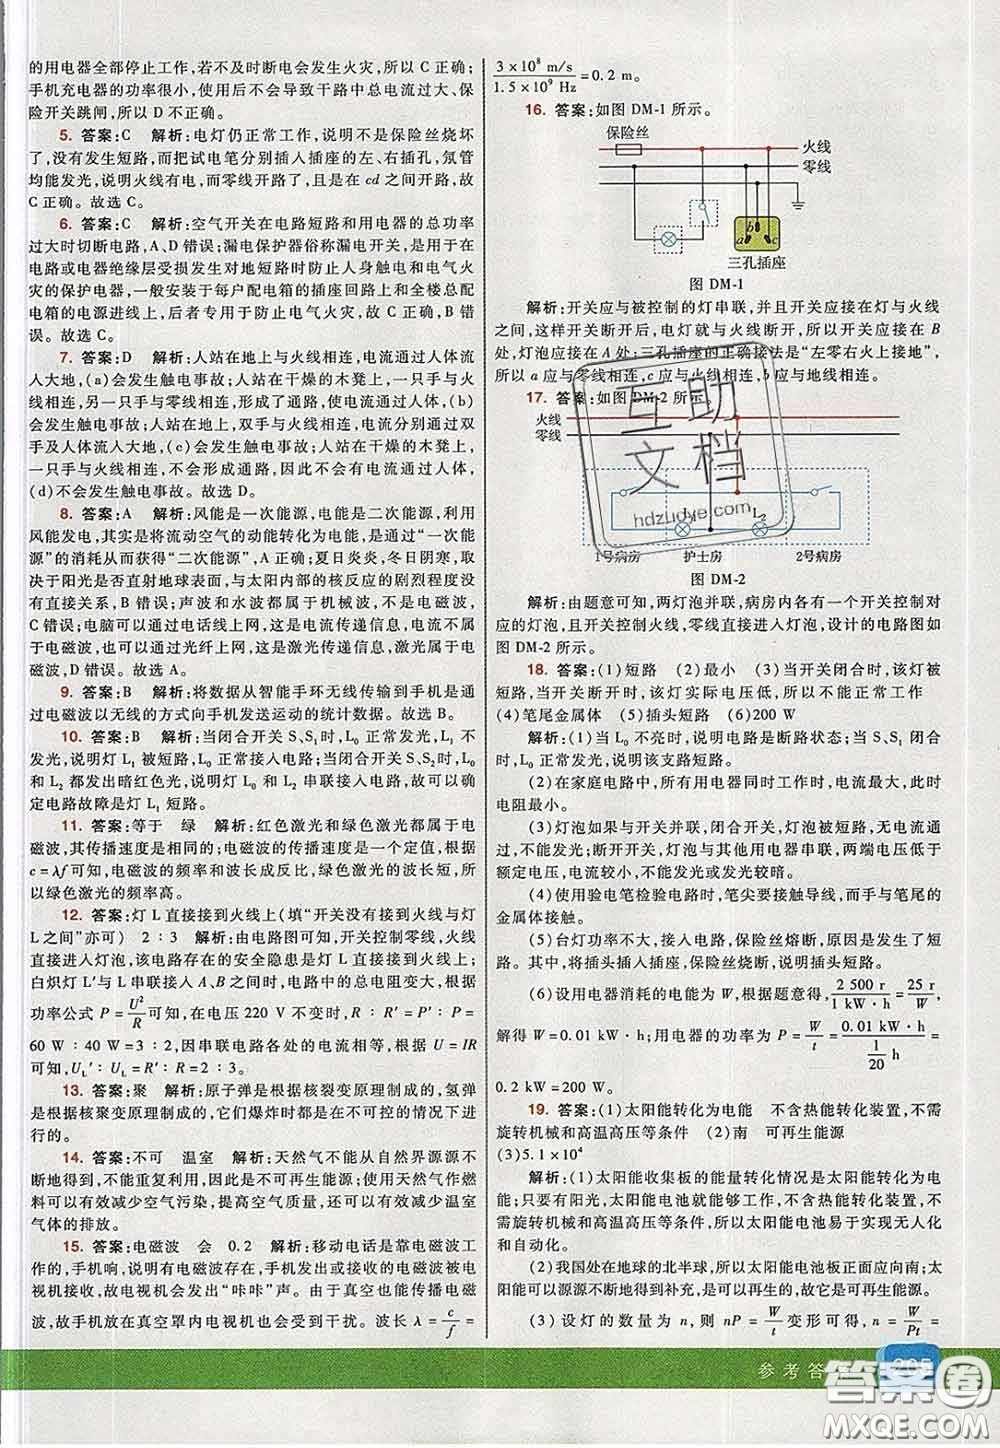 的用电器全部停止工作,若不及时断电会发生火灾,所以 C 正确;
手机充电器的功率很小,使用后不会导致干路中总电流过大、保
险开关跳闸,所以 D 不正确。
5. 答案:C 解析:电灯仍正常工作,说明不是保险丝烧坏
了,没有发生短路,而把试电笔分别插入插座的左、右插孔,氖管
均能发光,说明火线有电,而零线开路了,且是在 cd 之间开路,故
C 正确。故选 C。
6. 答案:C 解析:空气开关在电路短路和用电器的总功率
过大时切断电路,A、D 错误;漏电保护器俗称漏电开关,是用于在
电路或电器绝缘层受损发生对地短路时防止人身触电和电气火
灾的保护电器,一般安装于每户配电箱的插座回路上和全楼总配
电箱的电源进线上,后者专用于防止电气火灾,C 正确、B 错
误。故选 C。
7. 答案:D 解析:人站在地上与火线相连,电流通过人体流
入大地,(a)会发生触电事故;人站在干燥的木凳上,一只手与火
线相连,一只手与零线相连,形成了通路,使电流通过人体,(b)
会发生触电事故;人站在地上,双手与火线相连,电流通过双
手及人体流入大地,(c)会发生触电事故;人站在干燥的木凳上,
一只手与火线相连,不会形成通路,因此不会有电流通过人体,
(d)不会发生触电事故。故选 D。
8. 答案:A 解析:风能是一次能源,电能是二次能源,利用
风能发电,其实是将流动空气的动能转化为电能,是通过“一次能
源”的消耗从而获得“二次能源”,A 正确;夏日炎炎,冬日阴寒,取
决于阳光是否直射地球表面,与太阳内部的核反应的剧烈程度没
有直接关系,B 错误;声波和水波都属于机械波,不属于电磁波,
C 错误;电脑可以通过电话线上网,这是电流传递信息,电流不属
于电磁波,也可以通过光纤上网,这是激光传递信息,激光属于电
磁波,D 错误。故选 A。
9. 答案:B 解析:将数据从智能手环无线传输到手机是通
过电磁波以无线的方式向手机发送运动的统计数据。故选 B。
10. 答案:B 解析:当闭合开关 S、S₁时,灯 L₀正常发光,L₁不
发光,说明灯 L₁被短路,L₀正常接入电路;当闭合开关 S、S₂时,L₀
和 L₂都发出暗红色光,说明灯 L₀和 L₂串联接入电路,故可以确
定电路故障是灯 L₁短路。
11. 答案:等于 绿 解析:红色激光和绿色激光都属于电
磁波,其传播速度是相同的;电磁波的传播速度是一个定值,根据
c=λf可知,电磁波的频率和波长成反比,绿色激光的波长短,所
以绿色激光的频率高。
12. 答案:灯 L 直接接到火线上(填“开关没有接到火线与灯
L 之间”亦可) 2∶3 解析:由电路图可知,开关控制零线,火线
直接进入灯泡,该电路存在的安全隐患是灯 L 直接接到火线上;
白炽灯 L′与 L 串联接入 A、B 之间时,电路中的总电阻变大,根据
功率公式 P=U²/R 可知,在电压 220 V 不变时,R∶R′=P′∶P=
60 W∶40 W=3∶2,因串联电路各处的电流相等,根据 U=IR
可知,U_L′∶U_L=R′∶R=2∶3。
13. 答案:聚 解析:原子弹是根据核裂变原理制成的,氢弹
是根据核聚变原理制成的,它们爆炸时都是在不可控的情况下进
行的。
14. 答案:不可 温室 解析:天然气不能从自然界源源不
断地得到,不能重复利用,因此是不可再生能源;使用天然气作燃
料可以有效减少空气污染,提高空气质量,还可以有效减少温室
气体的排放。
15. 答案:电磁波 会 0.2 解析:移动电话是靠电磁波工
作的,手机响,说明有电磁波存在,手机发射的电磁波被电视机接
收,故电视机发出了“咔咔”声音;由于真空也能传播电磁
波,故手机放在真空罩内电视机也会受到干扰。波长 λ=c/f=
3×10⁸ m/s / 1.5×10⁹ Hz =0.2 m。
16. 答案:如图 DM-1 所示。
保险丝
火线
零线
a b c
三孔插座
图 DM-1
解析:开关应与被控制的灯串联,并且开关应接在灯与火线
之间,这样开关断开后,电灯就与火线断开,所以开关应接在 B
处,灯泡应接在 A 处;三孔插座的正确接法是“左零右火上接地”,
所以 a 应与零线相连,c 应与火线相连,b 应与地线相连。
17. 答案:如图 DM-2 所示。
火线
零线
L₂
1号病房 护士房 2号病房
图 DM-2
解析:由题意可知,两灯泡并联,病房内各有一个开关控制对
应的灯泡,且开关控制火线,零线直接进入灯泡,设计的电路图如
图 DM-2 所示。
18. 答案:(1)短路 (2)最小 (3)当开关闭合时,该灯被
短路,当开关断开时,该灯实际电压低,所以不能正常工作
(4)笔尾金属体 (5)插头短路 (6)200 W
解析:(1)当 L₀不亮时,说明电路是断路状态;当 S、S₁闭合
时,L₀正常发光,说明该支路短路。
(2)在家庭电路中,所有用电器同时工作时,电流最大,此时
电阻最小。
(3)灯泡如果与开关并联,闭合开关,灯泡被短路,无电流通
过,不能发光;断开开关,灯泡与其他用电器串联,两端电压低于
额定电压,电流较小,不能发光或发光较暗。
(4)使用验电笔检验电路时,笔尖要接触导线,而手与笔尾的
金属体接触。
(5)台灯功率不大,接入电路,保险丝熔断,原因是发生了短
路。其中,将插头插入插座,保险丝烧断,说明插头短路。
(6)设用电器消耗的电能为 W,根据题意得,2 500 r / 1 kW·h = 25 r / W,
解得 W=0.01 kW·h,用电器的功率为 P=W/t=0.01 kW·h / (1/20 h) =
0.2 kW=200 W。
19. 答案:(1)太阳能转化为电能 不含热能转化装置,不需
旋转机械和高温高压等条件 (2)南 可再生能源
(3)5.1×10⁴
解析:(1)太阳能收集板的能量转化情况是太阳能转化为电
能;只要有阳光,太阳能电池就能够工作,不含热能转化装置,不
需旋转机械和高温高压等条件,所以太阳能电池易于实现无人化
和自动化。
(2)我国处在地球的北半球,所以太阳能电池板正面应向南;
太阳能可以源源不断地得到补充,是可再生的,故它是可再生能源。
(3)设灯的数量为 n,则 nP=W/t 变形可得,n=W/Pt=
参考答
205
互助
文档
hdzudye.com
答案圈
MXQE.COM